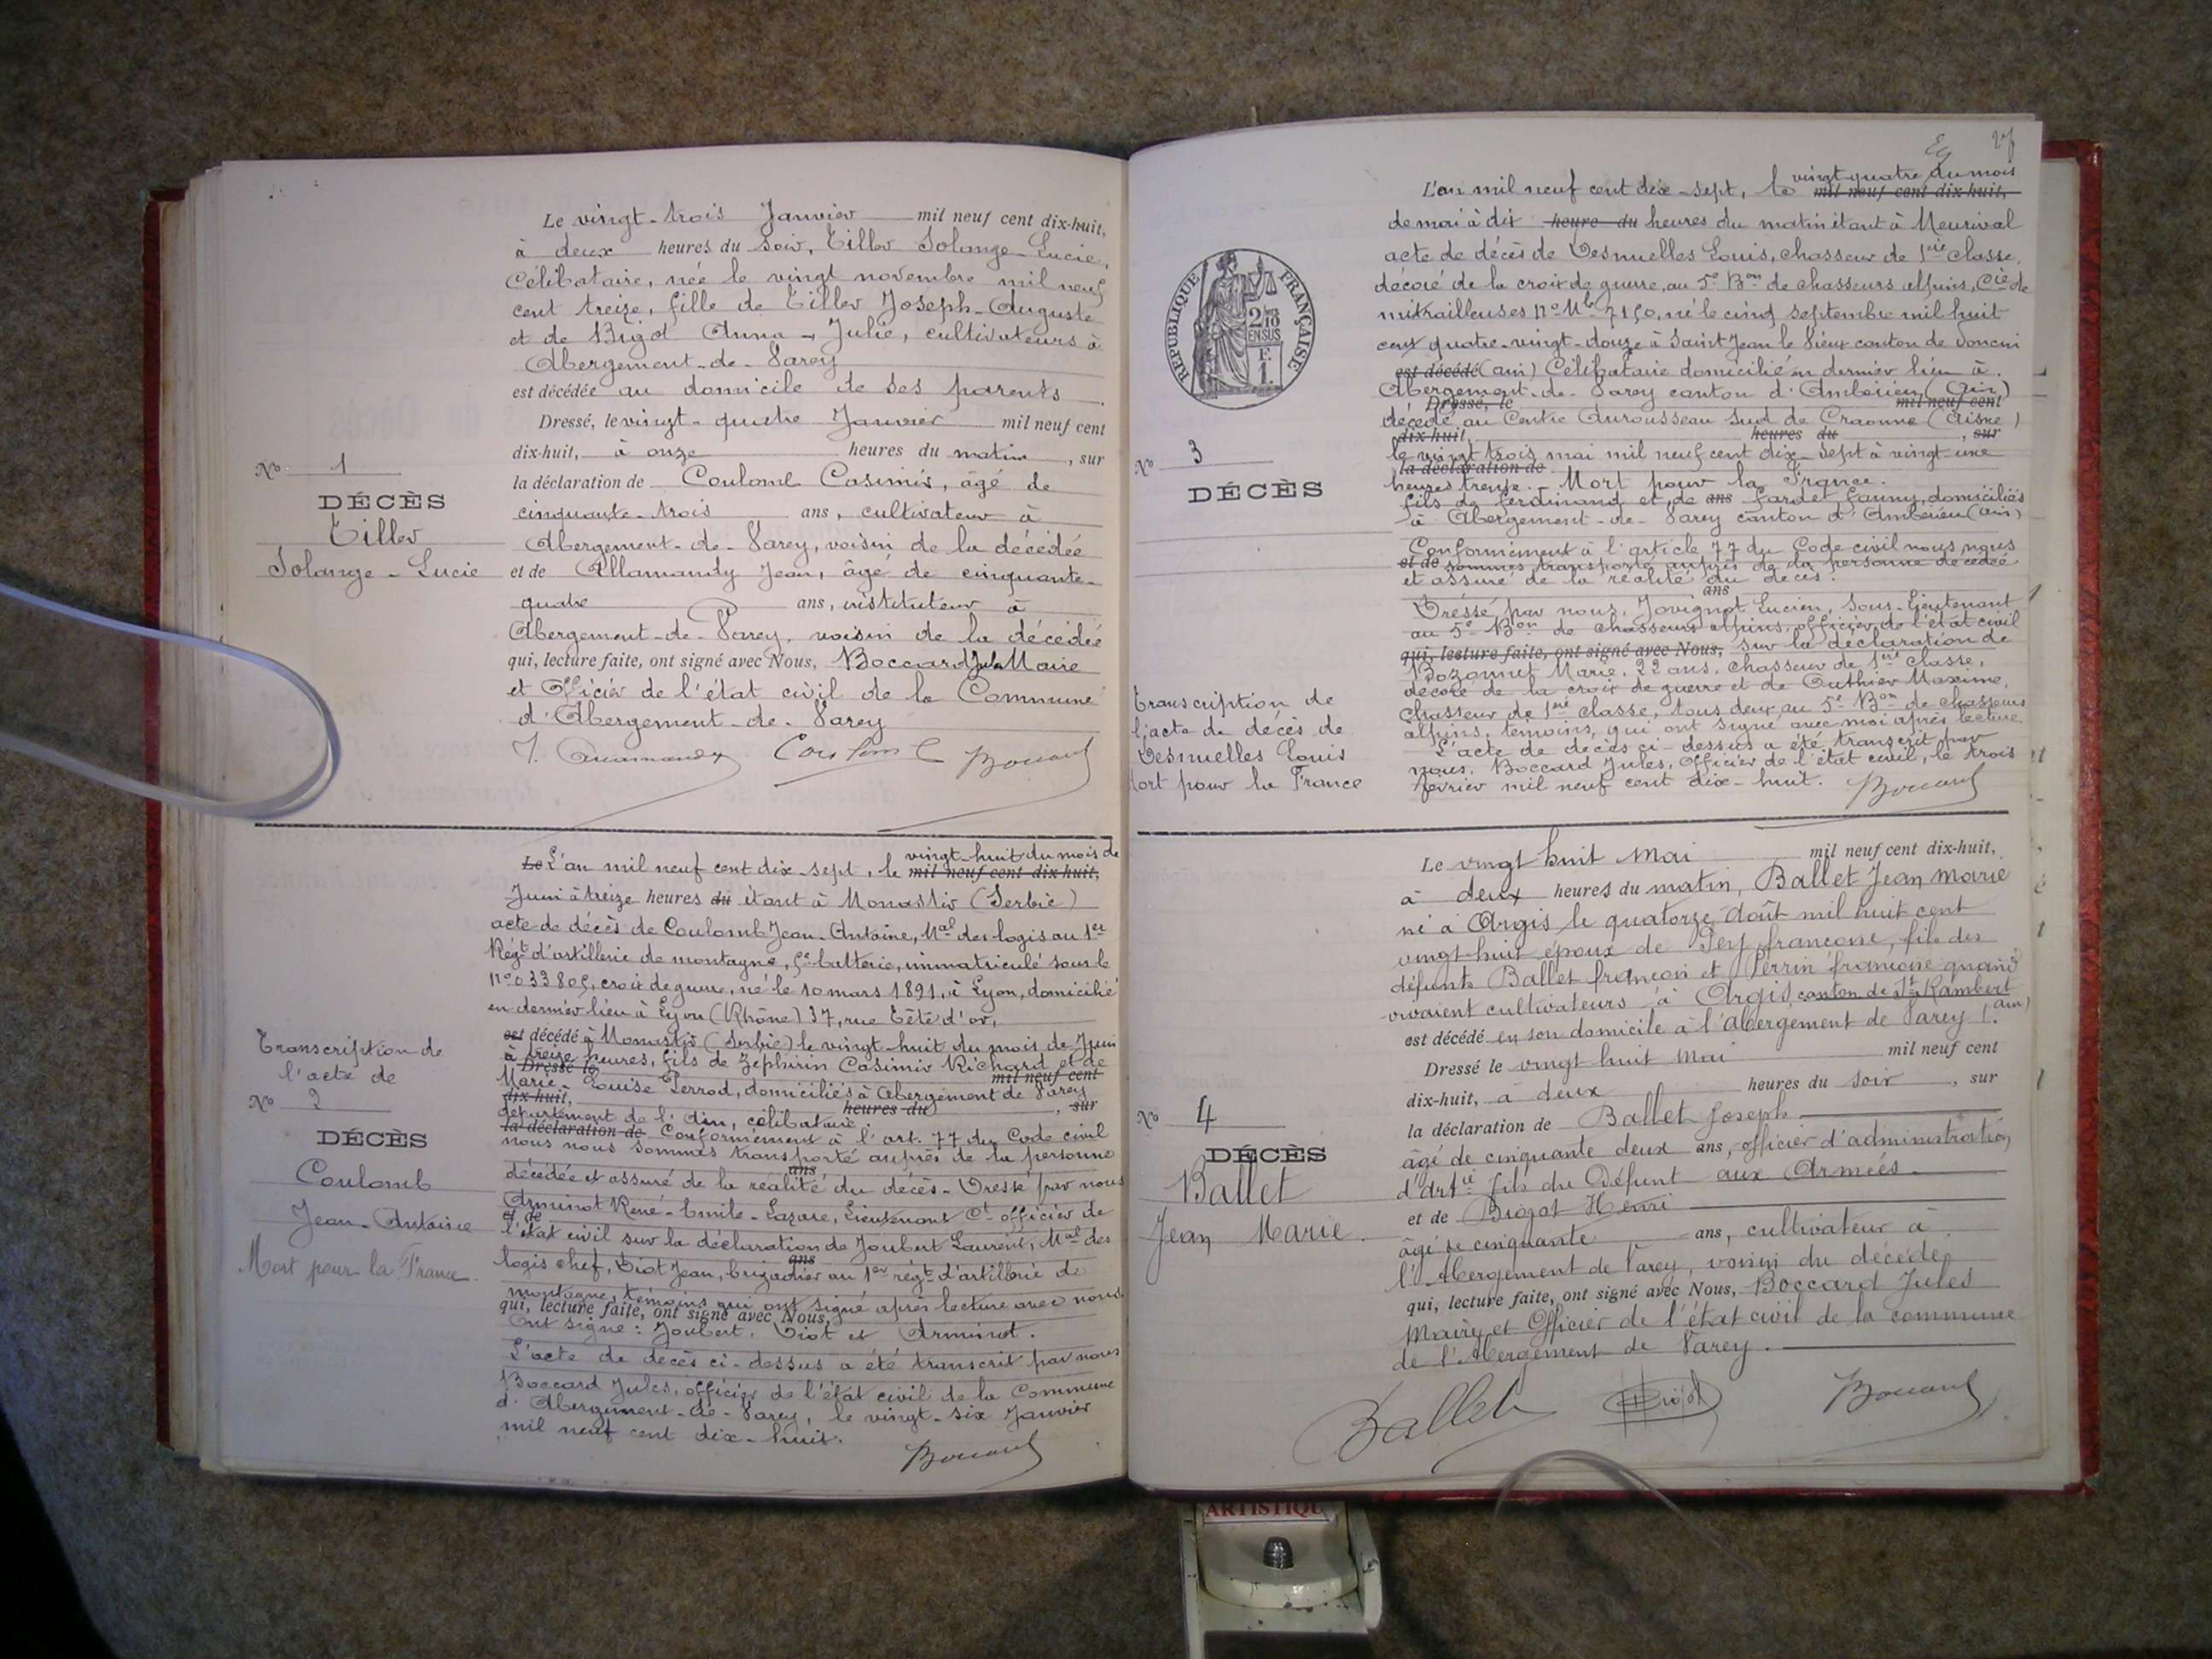 Le vingt-trois Janvier mil neuf cent dix-huit,
à deux heures du soir, Tiller Solange-Lucie,
Célibataire, née le vingt novembre mil neuf
cent treize, fille de Tiller Joseph-Auguste
et de Bigot Anna-Julie, cultivateurs à
Abergement-de-Varey
est décédée au domicile de ses parents.
Dressé, le vingt-quatre Janvier mil neuf cent
dix-huit, à onze heures du matin, sur
la déclaration de Coulomb Casimir, âgé de
cinquante-trois ans, cultivateur à
Abergement-de-Varey, voisin de la décédée
et de Allamandy Jean, âgé de cinquante-
quatre ans, instituteur à
Abergement-de-Varey, voisin de la décédée
qui, lecture faite, ont signé avec Nous, Boccard Jules Maire
et Officier de l'état civil de la Commune
d'Abergement-de-Varey
N° 1
DÉCÈS
Tiller
Solange-Lucie
Le L'an mil neuf cent dix-sept, le vingt-huit du mois de
mil neuf cent dix-huit,
Juin à treize heures du étant à Monastir (Serbie)
acte de décès de Coulomb Jean-Antoine, Mal des logis au 1er
Régt d'artillerie de montagne, batterie, immatriculé sous le
croix de guerre, né le 10 mars 1891, à Lyon, domicilié
en dernier lieu à Lyon (Rhône) 37, rue Tête d'or,
est décédé à Monastir (Serbie) le vingt-huit du mois de Juin
à treize heures, fils de Zéphirin Casimir Richard et de
Dressé le mil neuf cent
Marie-Louise Perrod, domiciliés à Abergement de Varey
dix-huit, heures du , sur
département de l'Ain, célibataire.
la déclaration de Conformément à l'art. 77 du Code civil
nous nous sommes transporté auprès de la personne
ans
décédée et assuré de la réalité du décès. Dressé par nous
Arminot René-Emile-Lazare, Lieutenant Ct officier de
et de
l'état civil sur la déclaration de Joubert Laurent, Mal des
ans
logis chef, Viot Jean, brigadier au 1er régt d'artillerie de
montagne, témoins qui ont signé après lecture avec nous.
qui, lecture faite, ont signé avec Nous,
Ont signé: Joubert, Viot et Arminot.
L'acte de décès ci-dessus a été transcrit par nous
Boccard Jules, officier de l'état civil de la Commune
d'Abergement-de-Varey, le vingt-six Janvier
mil neuf cent dix-huit.
Transcription de
l'acte de
N° 2
DÉCÈS
Coulomb
Jean-Antoine
Mort pour la France.
L'an mil neuf cent dix-sept, le vingt-quatre du mois
mil neuf cent dix-huit,
de mai à dix heure du heures du matin étant à Meurival
acte de décès de Desnuelles Louis, chasseur de 1ère classe,
décoré de la croix de guerre, au 5e Bon de chasseurs alpins, Cie de
mitrailleuses né le cinq septembre mil huit
cent quatre-vingt-douze à Saint Jean le Vieux canton de Poncin
est décédé (ain) Célibataire domicilié en dernier lieu à
Abergement-de-Varey canton d'Ambérieu (Ain)
Dressé, le mil neuf cent
décédé au Centre Aurousseau Sud de Craonne (Aisne)
dix-huit, heures du , sur
le vingt trois mai mil neuf cent dix-sept à vingt une
la déclaration de
heures trente. Mort pour la France.
fils de Ferdinand et de ans Fardet Fanny, domiciliés
à Abergement-de-Varey canton d'Ambérieu (Ain)
Conformément à l'article 77 du Code civil nous nous
et de sommes transporté auprès de la personne décédée
et assuré de la réalité du décès.
ans
Dressé par nous, Jovignot Lucien, Sous-Lieutenant
au 5e Bon de chasseurs alpins, officier de l'état civil
qui, lecture faite, ont signé avec Nous, sur la déclaration de
Bozonnet Marie, 22 ans, chasseur de 1ère classe,
décoré de la croix de guerre et de Outhier Maxime,
chasseur de 1ère classe, tous deux au 5e Bon de chasseurs
alpins, témoins, qui ont signé avec moi après lecture.
L'acte de décès ci-dessus a été transcrit par
nous, Boccard Jules, Officier de l'état civil, le trois
février mil neuf cent dix-huit.
RÉPUBLIQUE FRANÇAISE
2/10
EN SUS
F.
1.
N° 3
DÉCÈS
Transcription de
l'acte de décès de
Desnuelles Louis
Mort pour la France
Le vingt huit Mai mil neuf cent dix-huit,
à deux heures du matin, Ballet Jean Marie
né à Argis le quatorze Août mil huit cent
vingt-huit époux de françoise, fils des
défunts Ballet françois et Perrin françoise quand
vivaient cultivateurs à Argis, canton de St Rambert
est décédé en son domicile à l'Abergement de Varey (Ain)
Dressé le vingt huit Mai mil neuf cent
dix-huit, à deux heures du soir, sur
la déclaration de Ballet Joseph
âgé de cinquante deux ans, officier d'administration
d'Artie fils du Défunt aux Armées
et de Bigot Henri
âgé de cinquante ans, cultivateur à
l'Abergement de Varey, voisin du décédé
qui, lecture faite, ont signé avec Nous, Boccard Jules
Maire et Officier de l'état civil de la commune
de l'Abergement de Varey.
Ballet Bigot
N° 4
DÉCÈS
Ballet
Jean Marie.
ARTISTIQU